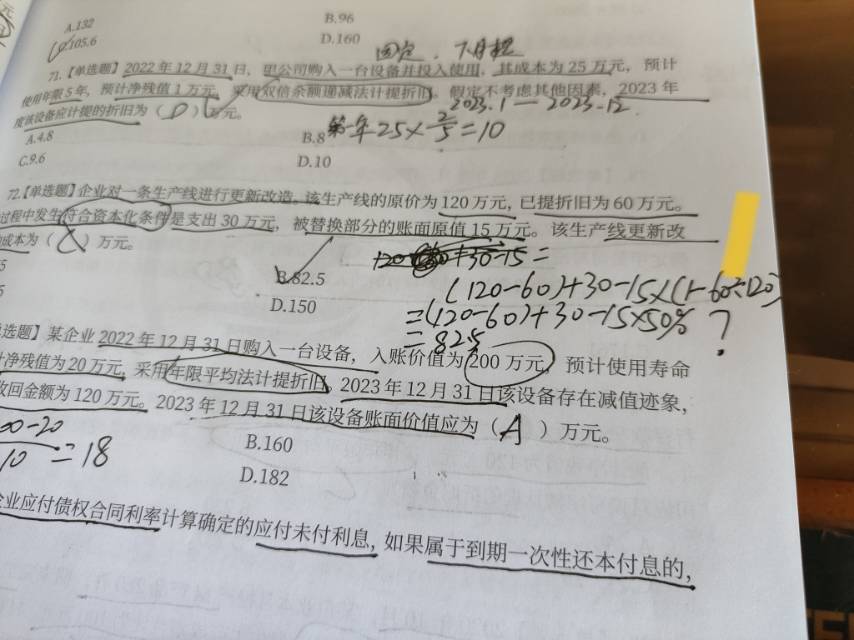 A.132
B.96
C.105.6
D.160
固定，下月提
71.【单选题】2022年12月31日，甲公司购入一台设备并投入使用，其成本为25万元，预计
使用年限5年，预计净残值1万元，采用双倍余额递减法计提折旧。假定不考虑其他因素，2023年
2023.1—2023.12
度该设备应计提的折旧为（D）万元。
第一年25×2/5=10
A.4.8
B.8
C.9.6
D.10
72.【单选题】企业对一条生产线进行更新改造。该生产线的原价为120万元，已提折旧为60万元。
过程中发生符合资本化条件是支出30万元，被替换部分的账面原值15万元。该生产线更新改
成本为（ ）万元。
+30-15=
B.82.5
(120-60)+30-15×(1-60÷120)
D.150
=(120-60)+30-15×50% ?
=82.5
单选题】某企业2022年12月31日购入一台设备，入账价值为200万元，预计使用寿命
计净残值为20万元，采用年限平均法计提折旧。2023年12月31日该设备存在减值迹象，
收回金额为120万元。2023年12月31日该设备账面价值应为（A）万元。
00-20
10 =18
B.160
D.182
企业应付债权合同利率计算确定的应付未付利息，如果属于到期一次性还本付息的，